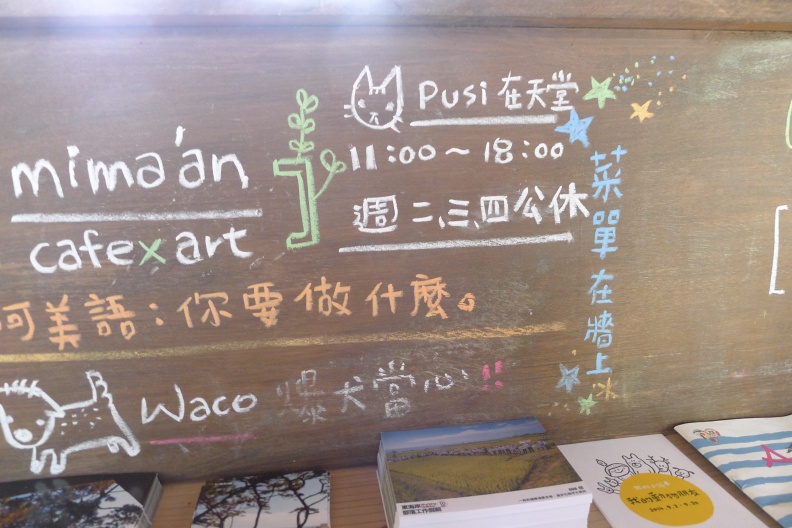 mima'an
cafe x art
阿美語：你要做什麼。
Pusi 在天堂
11:00～18:00
週二、三、四公休
菜單在牆上
Waco 爆犬當心!!
我的動物朋友